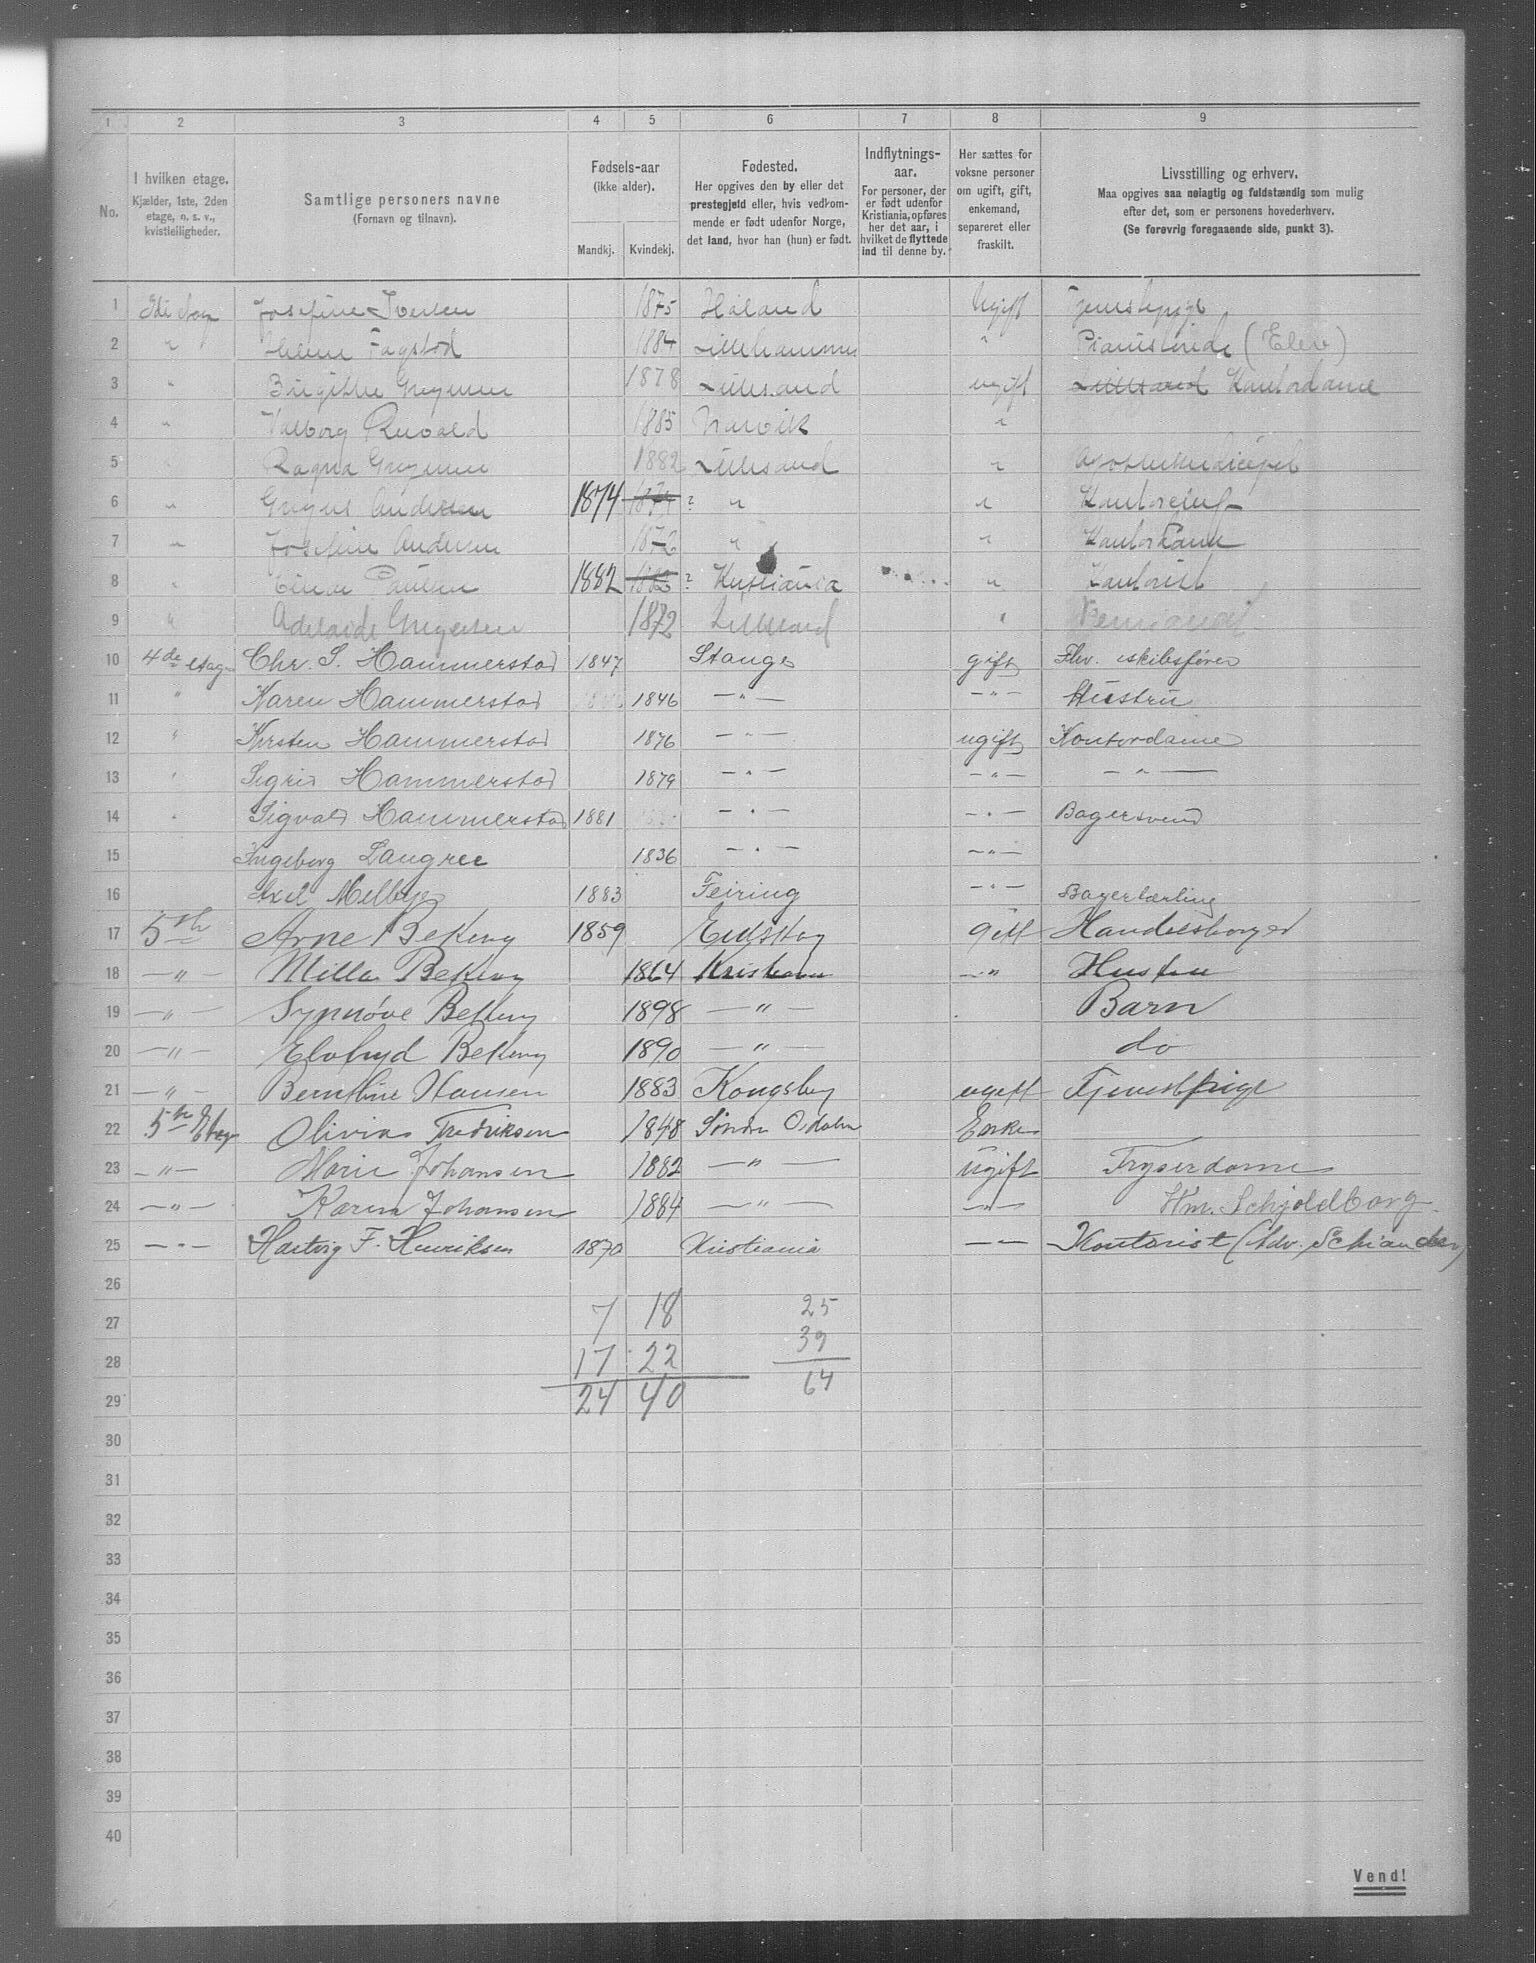 1 2 3 4 5 6 7 8 9
No.
I hvilken etage.
Kjælder, 1ste, 2den
etage, o. s. v.,
kvistleiligheder.
Samtlige personers navne
(Fornavn og tilnavn).
Fødsels-aar
(ikke alder).
Mandkj. Kvindekj.
Fødested.
Her opgives den by eller det
prestegjeld eller, hvis vedkom-
mende er født udenfor Norge,
det land, hvor han (hun) er født.
Indflytnings-
aar.
For personer, der
er født udenfor
Kristiania, opføres
her det aar, i
hvilket de flyttede
ind til denne by.
Her sættes for
voksne personer
om ugift, gift,
enkemand,
separeret eller
fraskilt.
Livsstilling og erhverv.
Maa opgives saa nøiagtig og fuldstændig som mulig
efter det, som er personens hovederhverv.
(Se forøvrig foregaaende side, punkt 3).
1 Josefine Iversen 1875 Høland Ugift
2 " Fagstad 1884 Lillehammer " Pianistinde (Elev)
3 " Birgitte 1878 Lillesand ugift Lillesand Kontordame
4 " Valborg Ruvald 1885 Narvik "
5 Ragna 1882 Lillesand "
6 " Andersen 1874 ? " "
7 " Josefine Andersen 1872 " " Kontordame
8 " 1882 ? Kristiania " Kontorist
9 " Adelaide 1872 Lillesand "
10 4de etage Chr. S. Hammerstad 1847 Stange gift
11 " Karen Hammerstad 1846 — " — — " — Hustru
12 " Kirsten Hammerstad 1876 — " — ugift Kontordame
13 " Sigrid Hammerstad 1879 — " — — " — — " —
14 " Sigvald Hammerstad 1881 — " — — " — Bagersvend
15 Ingeborg 1836 — " — — " —
16 Axel Melbye 1883 Feiring — " — Bagerlærling
17 5te Arne Bekkevig 1859 Eidskog gift Handelsborger
18 — " — Milla Bekkevig 1864 Kristiania — " Hustru
19 — " — Synnøve Bekkevig 1898 — " — Barn
20 — " — Bekkevig 1890 — " — do
21 — " — Berntine Hansen 1883 Kongsberg ugift Tjenestpige
22 5te Etage Olivia Fredriksen 1848 Søndre Odalen Enke
23 — " — Marie Johansen 1882 — " — Ugift
24 — " — Karen Johansen 1884 — " — — " — Hm. Schjoldborg
25 — " — Hartvig F. Henriksen 1870 Kristiania — " — Kontorist (Adv.
26
27 7 18 25
39
28 17 22
29 24 40 64
30
31
32
33
34
35
36
37
38
39
40
Vend!